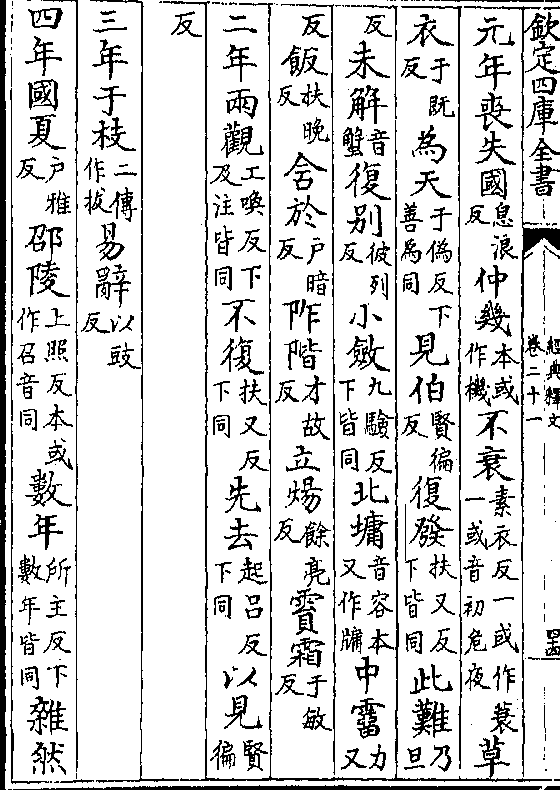 欽定四庫全書 經典釋文 卷二十一
元年喪失國息浪反仲幾本或作機不衰素衣反一或作蓑一或音初危夜草
衣于既反為天于偽反下善為同見伯賢徧反復發扶又反下皆同此難乃旦
反未解音蟹復别彼列反小斂九驗反下皆同北墉音容本又作牗中霤力又
反飯扶晚反舍於户暗反阼階才故反立煬餘亮反霣霜于敏反
二年兩觀工喚反下及注皆同不復扶又反下同先去起吕反下同以見賢徧
反
三年于枝二傳作拔易辭以豉反
四年國夏户雅反邵陵上照反本或作召音同數年所主反下數年皆同雜然